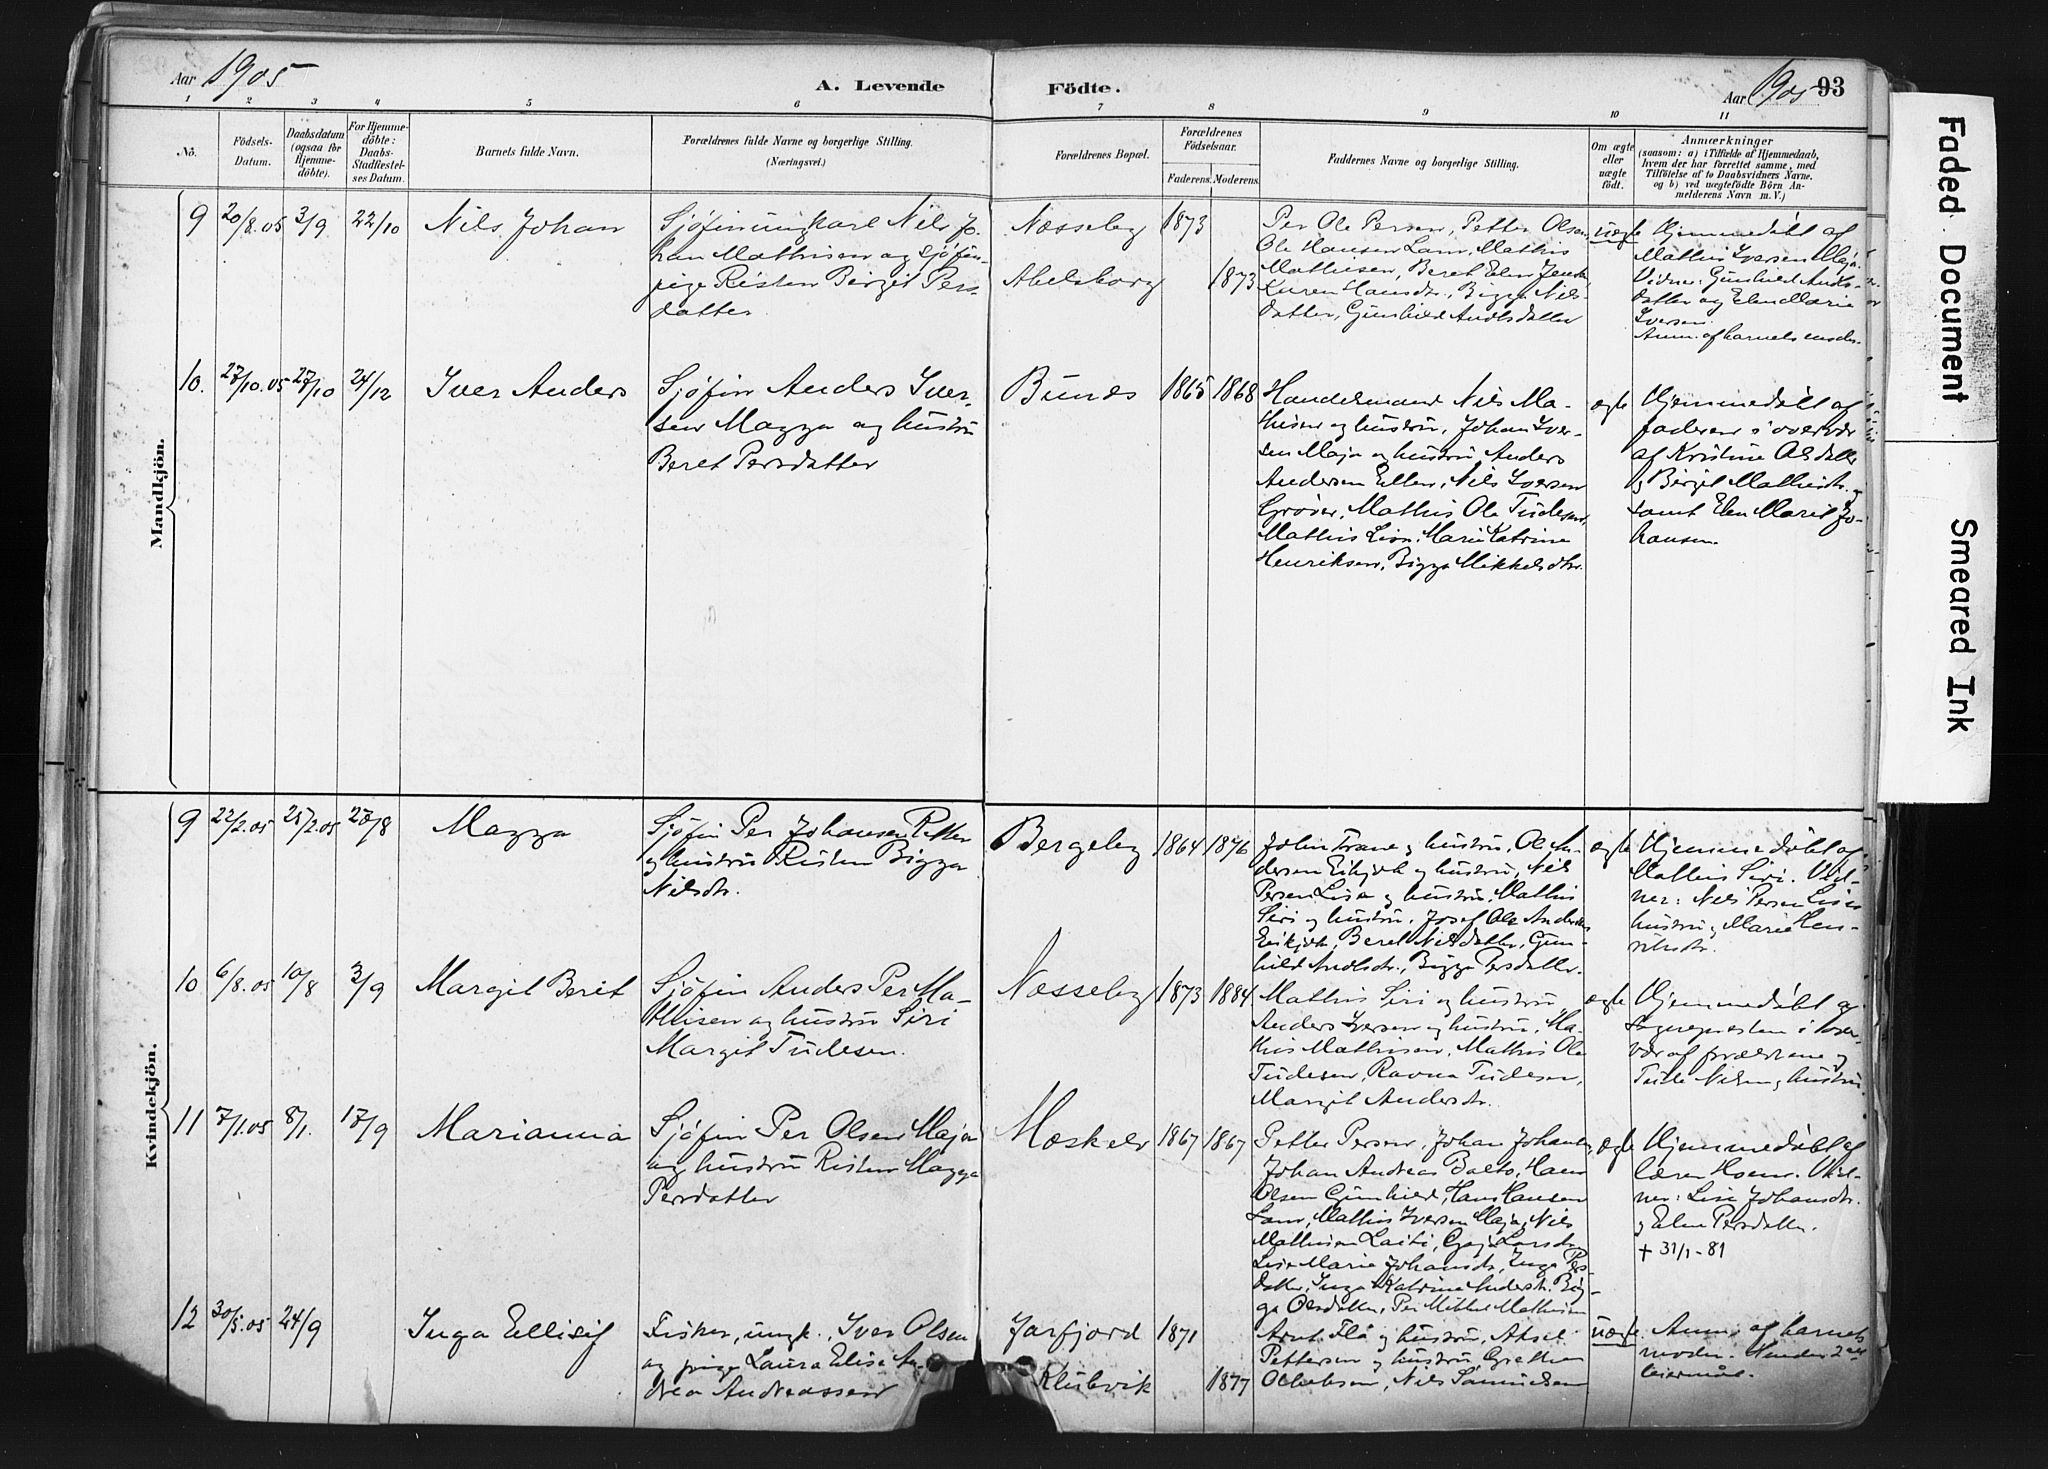 Aar 1905
A. Levende
Födte.
Aar 1905 93
1 2 3 4 5 6 7 8 9 10 11
Nö.
Födsels-
Datum.
Daabsdatum
(ogsaa for
Hjemme-
döbte).
For Hjemme-
döbte:
Daabs-
Stadfæstel-
ses Datum.
Barnets fulde Navn.
Forældrenes fulde Navne og borgerlige Stilling.
(Næringsvei.)
Forældrenes Bopæl.
Forældrenes
Födselsaar.
Faderens. Moderens.
Faddernes Navne og borgerlige Stilling.
Om ægte
eller
uægte
födt.
Anmærkninger
(saasom: a) i Tilfælde af Hjemmedaab,
hvem der har forrettet samme, med
Tilföielse af to Daabsvidners Navne.
og b) ved uægtefödte Börn An-
melderens Navn m. V.)
Mandkjön.
9 20/8.05 3/9 22/10 Nils Johan
Sjøfin ungkarl Nils Jo-
han Mathisen og sjøfin-
pige Risten Birgit Pers-
datter
Næsseby 1873
Abelsborg 1873
Per Ole Persen, Petter Olsen
Ole Hansen Lam, Mathis
Mathisen, Beret Elen Jensdr
Karen Hansdr., Bigga Nils-
datter, Gunhild Andersdatter
uægte
Hjemmedøbt af
Mathis Iversen Maja.
Vidner: Gunhild Anders-
datter og Elen Marie
Iversen.
Anm. af barnets moder.
10. 27/10.05 27/10 24/12 Iver Anders
Sjøfin Anders Iver-
sen Magga og hustru
Beret Persdatter
Bunes 1865 1868
Handelsmand Nils Ma-
thisen og hustru, Johan Iver-
sen Maja og hustru, Anders
Andersen Ellen, Nils Iversen
Mathis Ole Tudesen,
Mathis Marie Katrine
Henriksen, Bigga Mikkelsdtr.
ægte
Hjemmedøbt af
faderen i overvær
af Kristine Olsdatter
, Birgit Mathisdtr. og
samt Elen Marit Jo-
hansen.
Kvindekjön.
9 22/2.05 25/2.05 20/8 Magga
Sjøfin Per Johansen
og hustru Risten Bigga
Nilsdtr.
Bergeby 1864 1876
John Trane og hustru, Ole An-
dersen og hustru, Nils
Persen Lisa og hustru, Mathis
Siri og hustru, Josef Ole Anders
Beret Nilsdatter, Gun-
hild Andersdtr., Bigga Persdatter.
ægte
Hjemmedøbt af
Mathis Siri. Vid-
ner: Nils Persen Lisas
hustru og Marie Hen-
riksdtr.
10 6/8.05 10/8 3/9 Margit Beret
Sjøfin Anders Per Ma-
thisen og hustru Siri
Margit Tudesen.
Næsseby 1873 1884
Mathis Siri og hustru
Anders Iversen og hustru, Ma-
this Mathisen, Mathis Ole
Tudesen, Ravna Tudesen,
Margit Andersdtr.
ægte
Hjemmedøbt af
Sognepresten i over-
vær af forældrene og
Tude Nilsen og hustru
11 7/1.05 8/1. 17/9 Marianna
Sjøfin Per Olsen Maja
og hustru Risten Magga
Persdatter
Mæskelv 1867 1867
Petter Persen, Johan Johansen,
Johan Andreas Balto, Hans
Olsen Gunhild, Hans Hansen
Lam, Mathis Iversen Maja, Nils
Mathisen Laiti, Larsdtr
Lise Marie Johansdtr, Inga Pers-
datter, Inga Katrine Andersdtr. Big-
ga Olsdatter, Per Mikkel Mathisen
ægte
Hjemmedøbt af
lærer Vid-
ner: Lise Johansdtr.
og Elen Persdatter.
+ 31/1-81
12 30/5.05 24/9 Inga Ellisif
Fisker, ungk., Iver Olsen
og pige Laura Elise An-
drea Andreassen
Jarfjord 1871
Klubvik 1877
Arnt Flå og hustru, Aksel
Pettersen og hustru, Grethe
Nils Samuelsen
uægte
Anm. af barnets
moder. Hendes 2det
leiermål.
Faded Document
Smeared Ink